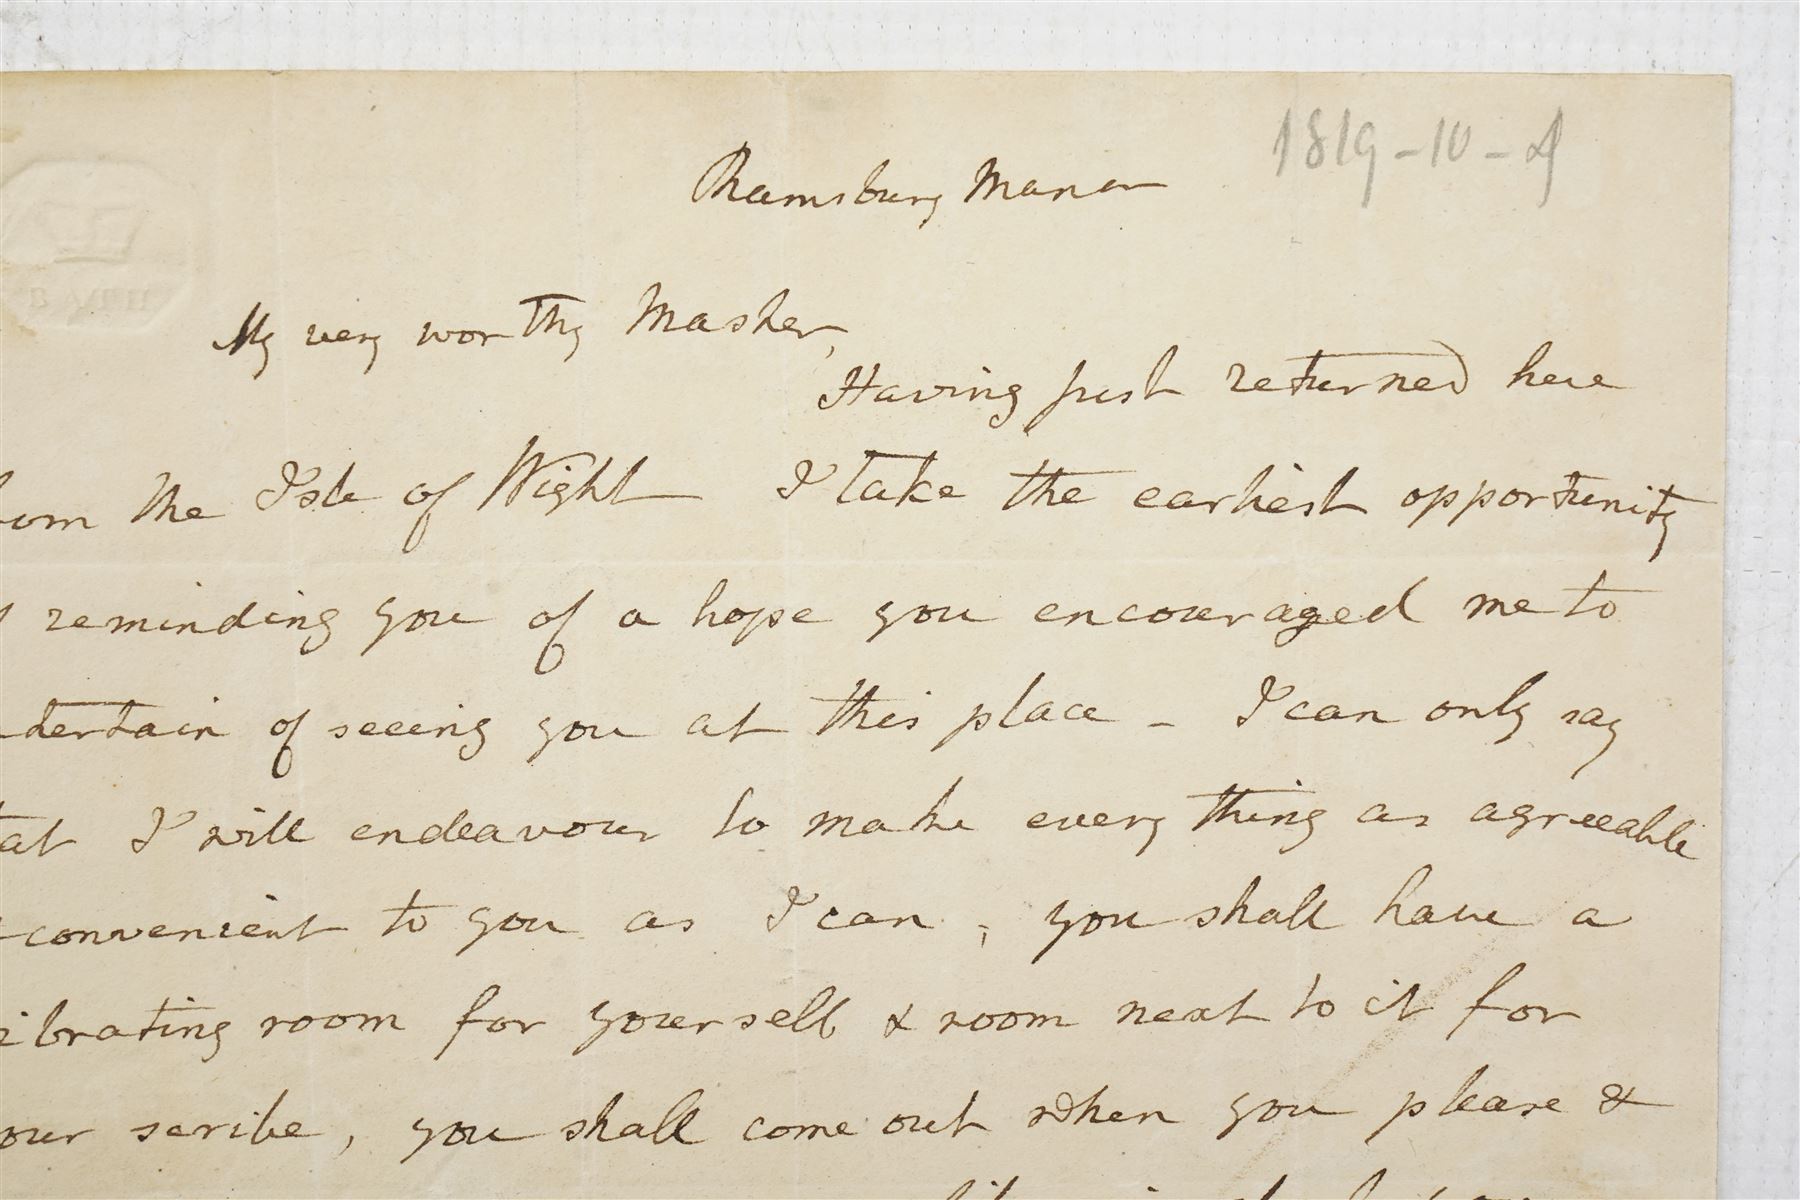 1819-10-4
Ramsbury Manor
BATH
My very worthy Master,
Having just returned here
rom the Isle of Wight I take the earliest opportunity
reminding you of a hope you encouraged me to
tertain of seeing you at this place - I can only say
at I will endeavour to make every thing as agreeable
convenient to you as I can ; you shall have a
ibrating room for yourself & room next to it for
our scribe, you shall come out when you please &